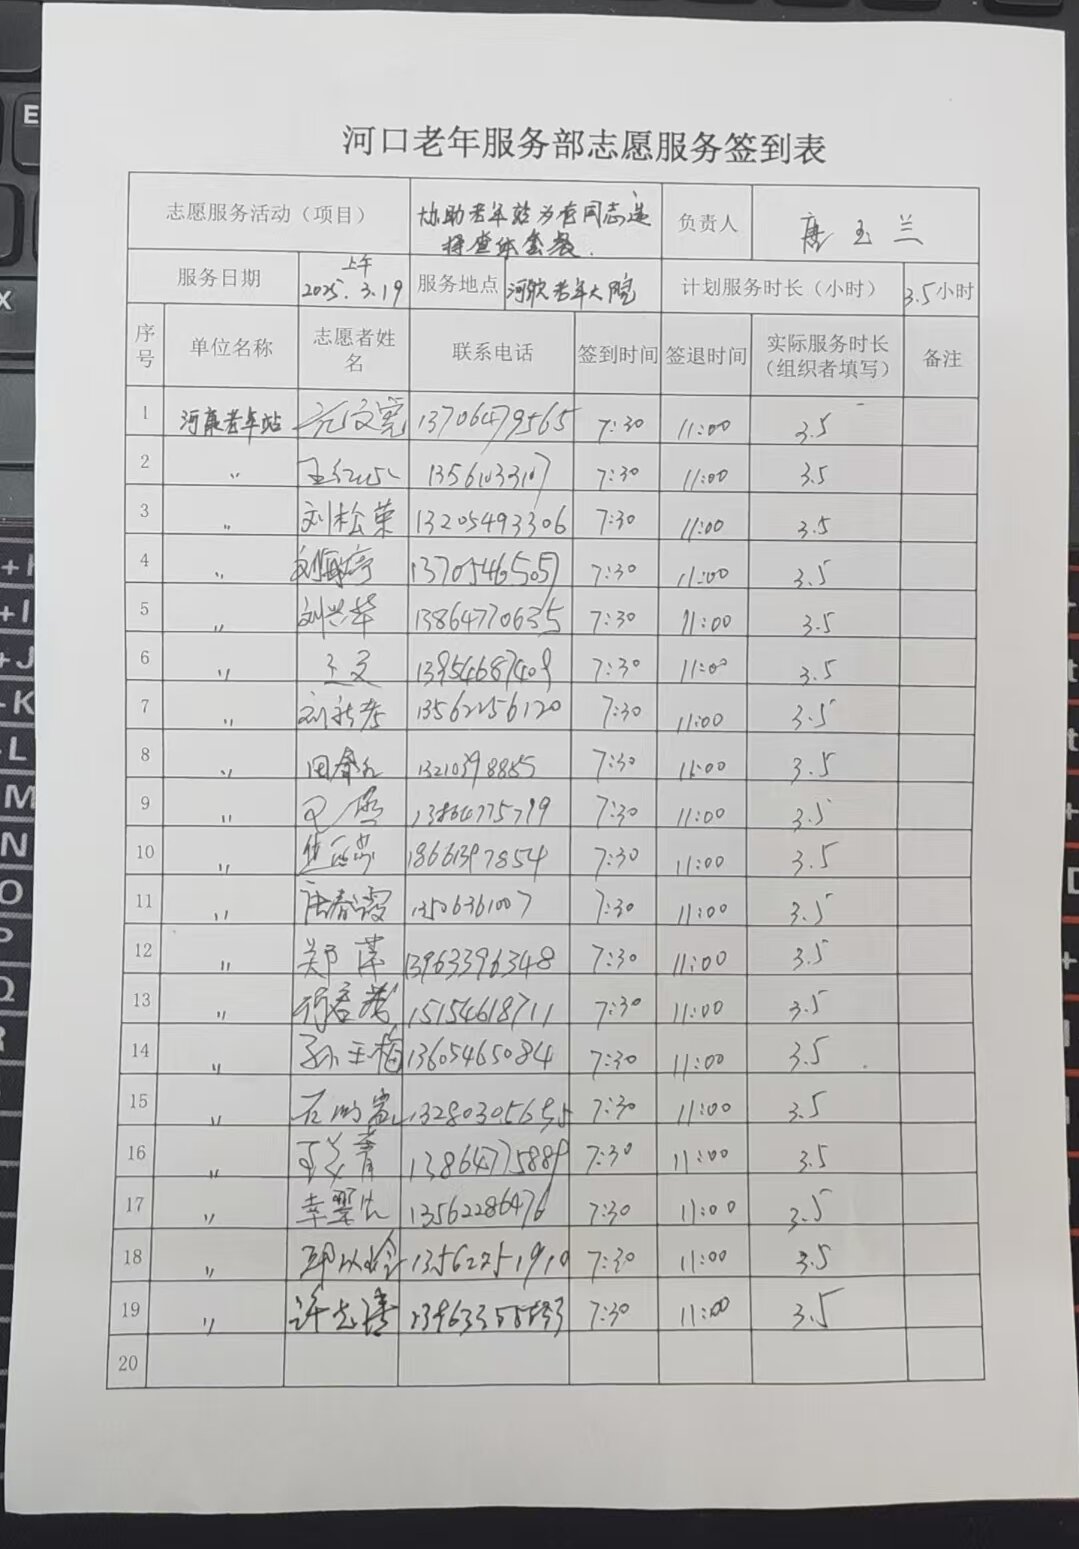 河口老年服务部志愿服务签到表
志愿服务活动（项目） 协助老年站为老同志选择查体套餐. 负责人 唐玉兰
服务日期 上午 2025.3.19 服务地点 老年大院 计划服务时长（小时） 3.5小时
序号 单位名称 志愿者姓名 联系电话 签到时间 签退时间 实际服务时长（组织者填写） 备注
1 河康老年站 亓文宽 13706479565 7:30 11:00 3.5
2 〃 13561033107 7:30 11:00 3.5
3 〃 刘松荣 13205493306 7:30 11:00 3.5
4 〃 13705465057 7:30 11:00 3.5
5 〃 刘兴华 13864770635 7:30 11:00 3.5
6 〃 王文 13954687409 7:30 11:00 3.5
7 〃 13562256120 7:30 11:00 3.5
8 〃 7:30 11:00 3.5
9 〃 13864775779 7:30 11:00 3.5
10 〃 18661397854 7:30 11:00 3.5
11 〃 唐春霞 13506361007 7:30 11:00 3.5
12 〃 郑萍 13963396348 7:30 11:00 3.5
13 〃 15154618711 7:30 11:00 3.5
14 〃 孙玉梅 13605465084 7:30 11:00 3.5
15 〃 7:30 11:00 3.5
16 〃 13864775889 7:30 11:00 3.5
17 〃 13562286476 7:30 11:00 3.5
18 〃 13562251910 7:30 11:00 3.5
19 〃 7:30 11:00 3.5
20